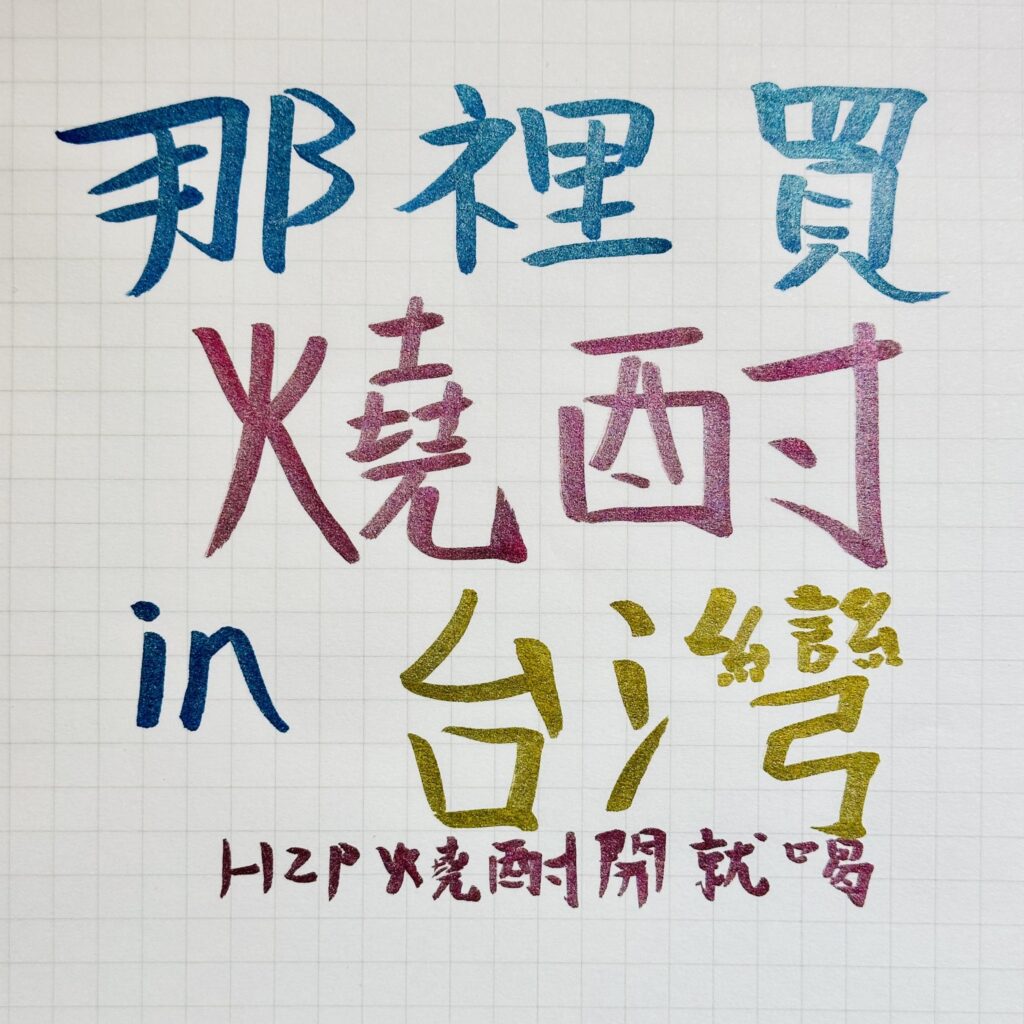 那裡買
燒酎
in 台灣
HZP燒酎開就喝